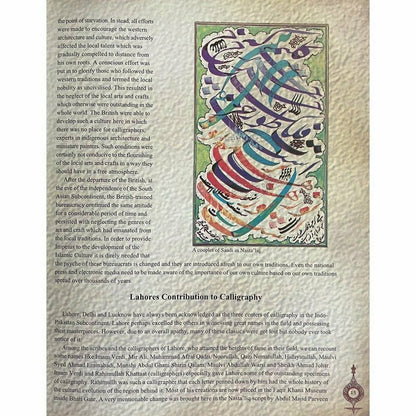 the point of starvation. In stead, all efforts
were made to encourage the western
architecture and culture, which adversely
affected the local talent which was
gradually compelled to distance from
his own roots. A conscious effort was
put in to glorify those who followed the
western traditions and termed the local
nobility as uncivilised. This resulted in
the neglect of the local arts and crafts
which otherwise were outstanding in the
whole world. The British were able to
develop such a culture here in which
there was no place for calligraphers,
experts in indigenous architecture and
miniature painters. Such conditions were
certainly not conducive to the flourishing
of the local arts and crafts in a way they
should have in a free atmosphere.
After the departure of the British, at
the eve of the independence of the South
Asian Subcontinent, the British-trained
bureaucracy continued the same attitude
for a considerable period of time and
persisted with neglecting the genres of
art and craft which had emanated from
the local traditions. In order to provide
impetus to the development of the
Islamic Culture it is dearly needed that
A couplet of Saadi in Nasta'liq
the psyche of these bureaucrats is changed and they are introduced afresh to our own traditions. Even the national
press and electronic media need to be made aware of the importance of our own culture based on our own traditions
spread over thousands of years.
Lahores Contribution to Calligraphy
Lahore, Delhi and Lucknow have always been acknowledged as the three centers of calligraphy in the Indo-
Pakistan Subcontinent. Lahore perhaps excelled the others in producing great names in the field and possessing
their masterpieces. However, due to an overall apathy, many of these classics were get lost but nobody ever took
notice of it.
Among the scribes and the calligraphers of Lahore, who attained the heights of fame in their field, we can recount
some names like Imam Verdi, Mir Ali, Muhammad Afzal Qadri, Noorullah, Qazi Nematullah, Hidayatullah, Maulvi
Syed Ahmed Eimanabadi, Munshi Abdul Ghani Shirin Qalam, Maulvi Abdullah Warsi and Sheikh Ahmad Johar.
Imam Verdi and Rahimullah Khattaat (calligrapher) especially gave Lahore some of the outstanding specimens
of calligraphy. Rahimullah was such a calligrapher that each letter penned down by him had the whole history of
the cultural evolution of the region behind it. Most of his creations are now placed in the Faqir Khana Museum
inside Bhati Gate. A very memorable chapter was brought here in the Nasta'liq script by Abdul Majid Parveen